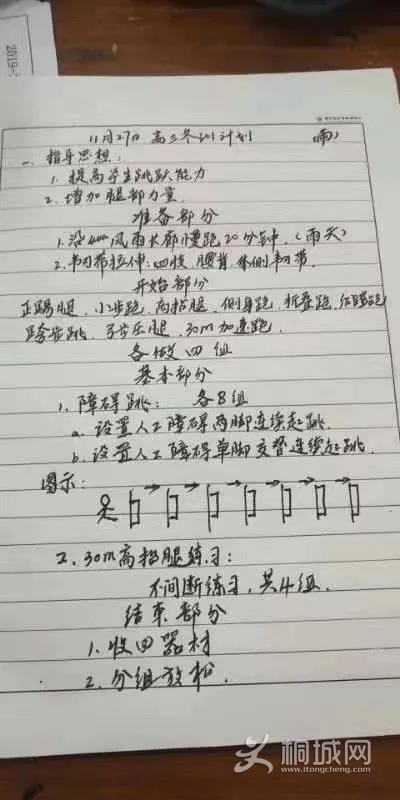 2019-
11月27日 高三冬训计划 (雨)
一、指导思想:
1. 提高学生跳跃能力
2. 增加腿部力量
准备部分
1. 沿400m风雨长廊慢跑20分钟.(雨天)
2. 韧带拉伸:四肢、腰背、体侧韧带.
开始部分
正踢腿、小步跑、高抬腿、侧身跑、折叠跑、后蹬跑
跨步跳、弓步压腿、30m加速跑.
各做四组
基本部分
1. 障碍跳: 各8组
a. 设置人工障碍两脚连续起跳.
b. 设置人工障碍单脚交替连续起跳.
图示:
2. 30m高抬腿练习:
不间断练习,共4组.
结束部分
1. 收回器材
2. 分组放松.
桐城网
www.itongcheng.com